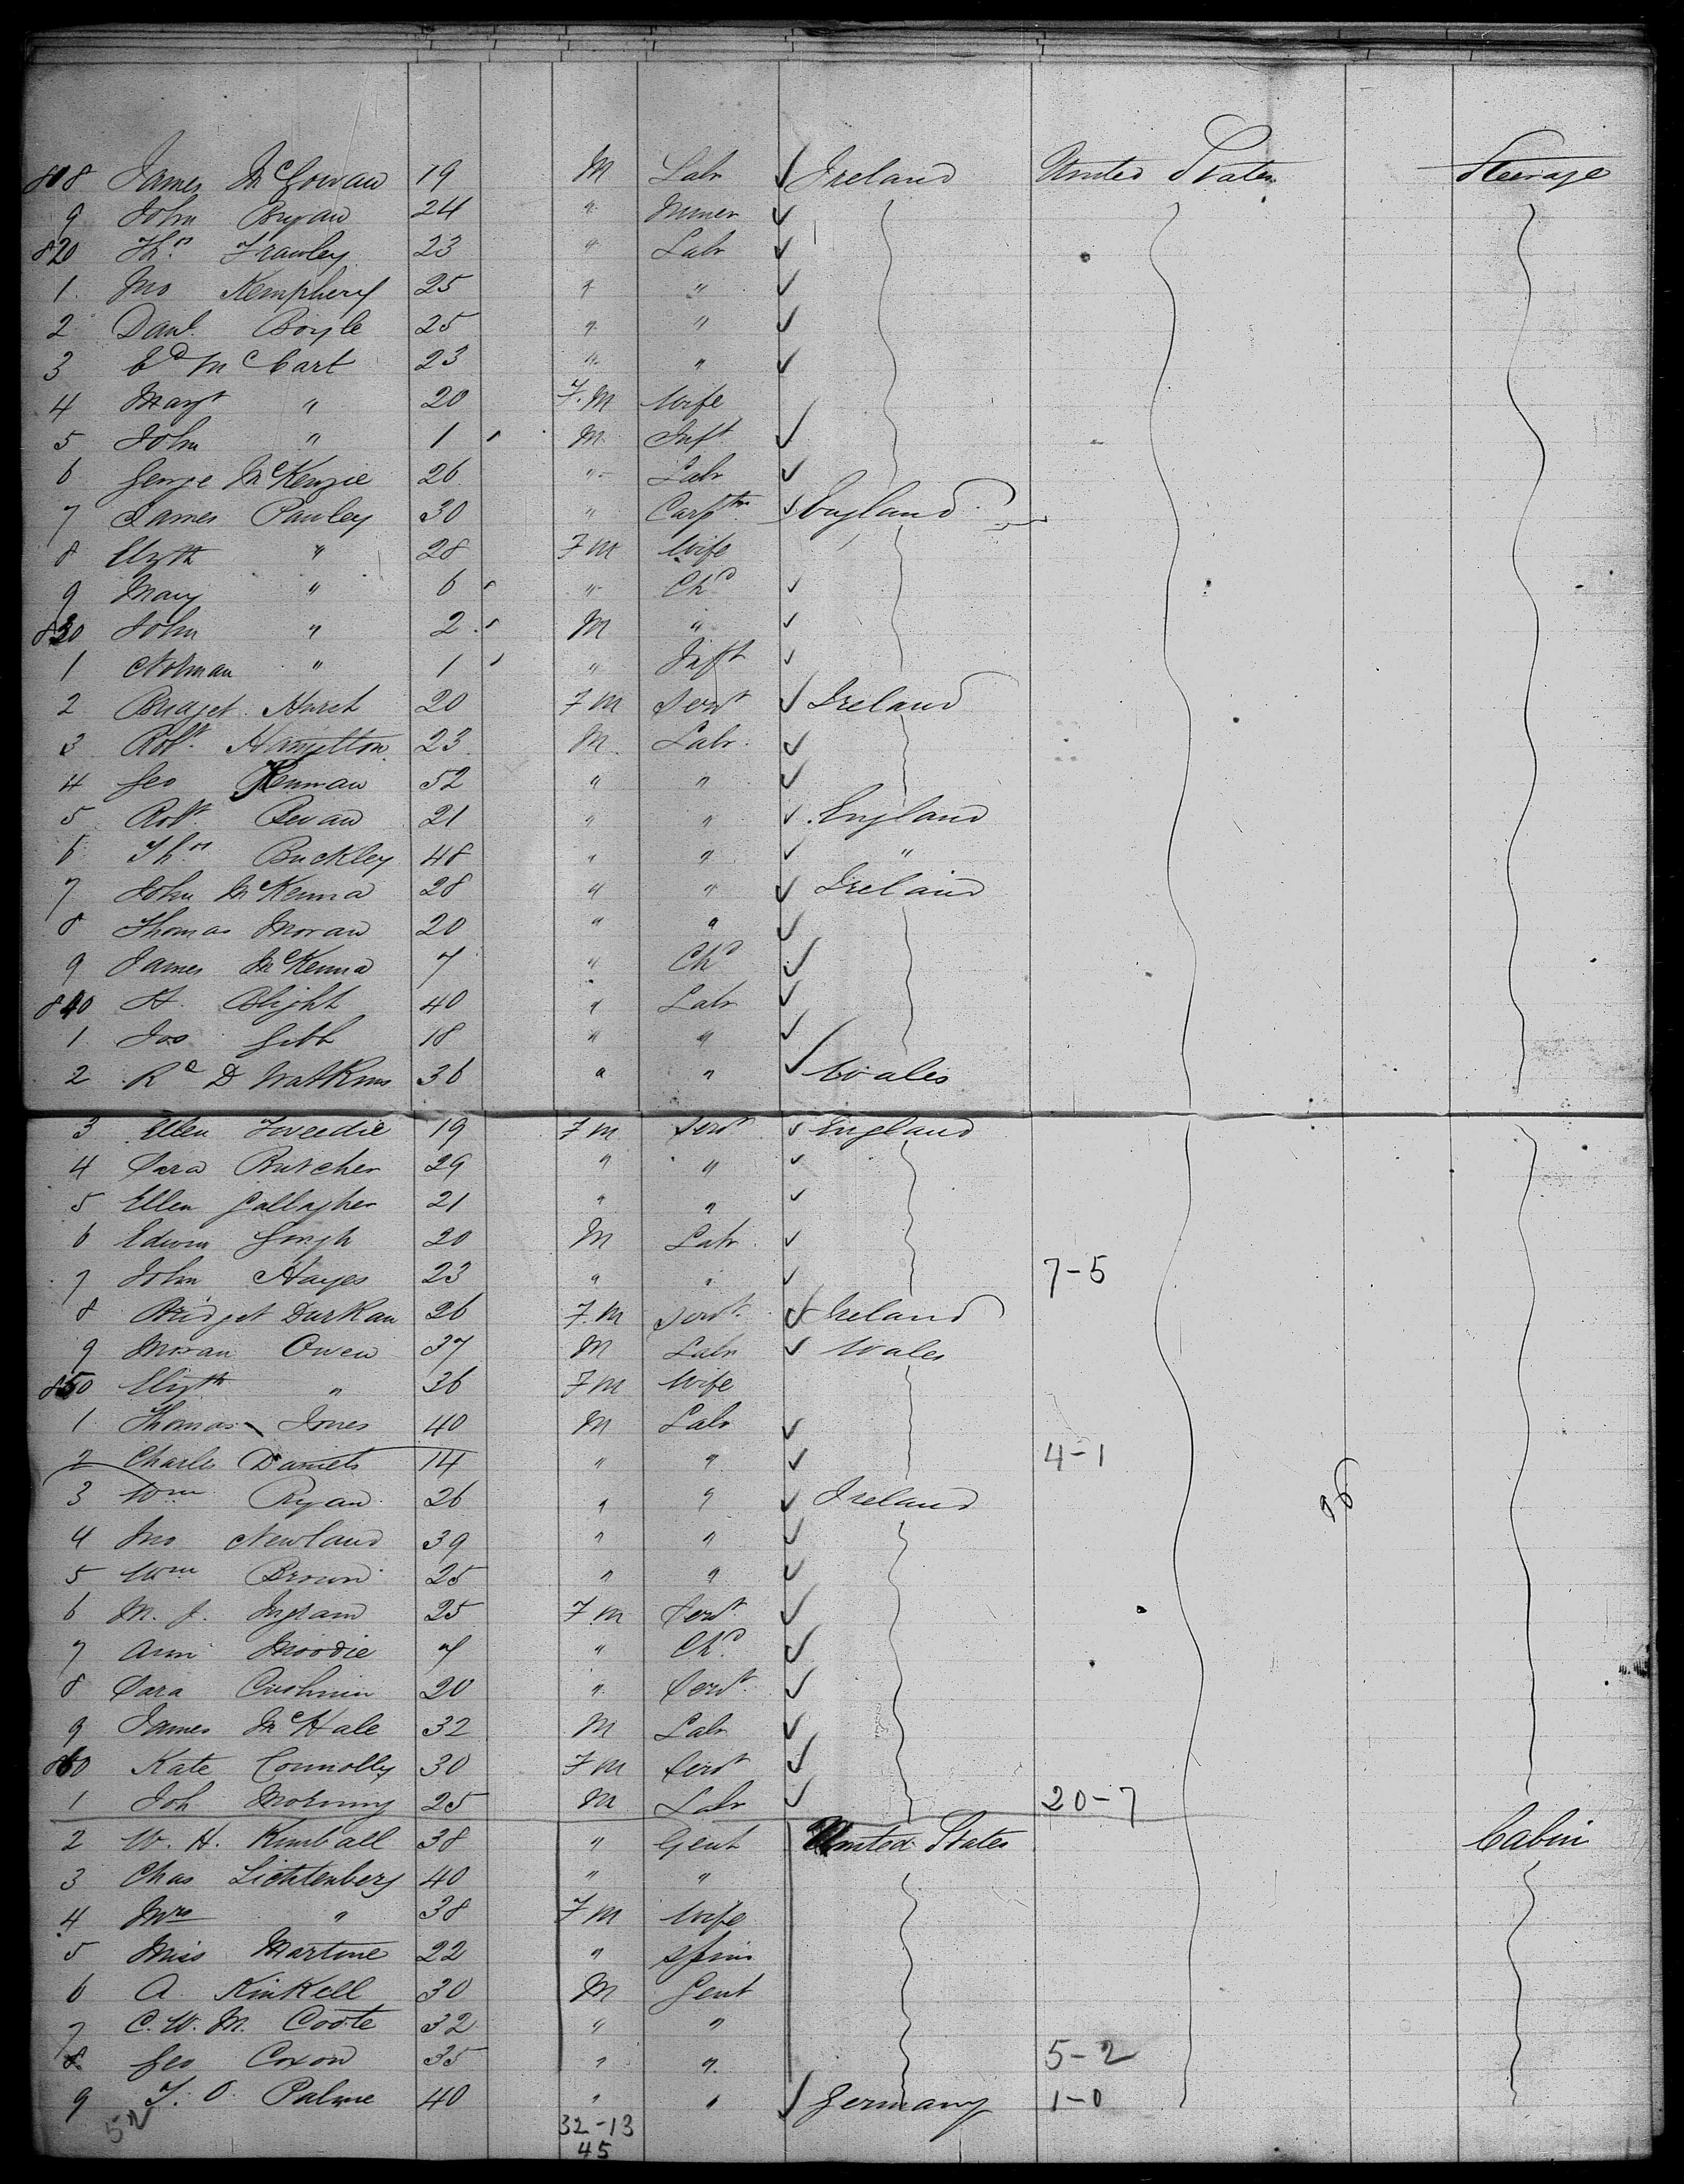 818 James McGowan 19 M Labr ✓ Ireland United States Steerage
9 John Bryan 24 " Miner ✓
820 Ths Frawley 23 " Labr ✓
1 Jno Kemphery 25 " " ✓
2 Danl Boyle 25 " " ✓
3 Ed McCart 23 " " ✓
4 Margt " 20 F.M Wife
5 John " 1 M Inft ✓
6 George McKenzie 26 " Labr ✓
7 James Pauley 30 " Carptr ✓ England
8 Elizth " 28 F M Wife
9 Mary " 6 " Chd ✓
830 John " 2 M " ✓
1 Norman " 1 " Inft ✓
2 Bridget Hurst 20 F M Servt ✓ Ireland
3 Robt Hamilton 23 M Labr ✓
4 Geo 52 " " ✓
5 Robt Bevan 21 " " ✓ England
6 Ths Buckley 48 " " ✓ "
7 John McKenna 28 " " ✓ Ireland
8 Thomas Moran 20 " " ✓
9 James McKenna 7 " Chd ✓
840 A. Blight 40 " Labr ✓
1 Jos Gibb 18 " " ✓
2 Rd D Watkins 36 " " ✓ Wales
3 Ellen Tweedie 19 F M Servt ✓ England
4 Sara Butcher 29 " " ✓
5 Ellen Gallagher 21 " " ✓
6 Edwin Gough 20 M Labr ✓
7 John Hayes 23 " " ✓ 7-5
8 Bridget Durkan 26 F.M Servt ✓ Ireland
9 Moran Owen 37 M Labr ✓ Wales
850 Elizth " 36 F M Wife
1 Thomas Jones 40 M Labr ✓
2 Charles Daniels 14 " " ✓ 4-1
3 Wm Ryan 26 " " ✓ Ireland
4 Jno Newland 39 " " ✓
5 Wm Brown 25 " " ✓
6 M. J. Ingram 25 F M Servt ✓
7 Ann Moodie 7 " Chd ✓
8 Sara Cushnin 20 " Servt ✓
9 James McHale 32 M Labr ✓
860 Kate Connolly 30 F M Servt ✓
1 Joh 25 M Labr ✓ 20-7
2 W. H. Kimball 38 " Gent United States Cabin
3 Chas Lichtenberg 40 " "
4 Mrs " 38 F M Wife
5 Miss Martine 22 " Spin
6 A. Kinkell 30 M Gent
7 C. W. M. Coote 32 " "
8 Geo Coxon 35 " " 5-2
9 T. O. Palme 40 " " ✓ Germany 1-0
52 32-13
45